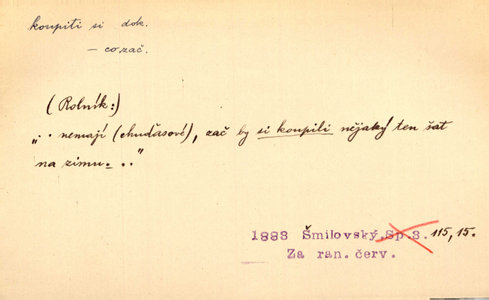 koupiti si dok.
– co zač.
(Rolník:)
„.. nemají (chuďasové), zač by si koupili nějaký ten šat
na zimu. .."
1883 Šmilovský, Sp. 3. 115, 15.
Za ran. červ.